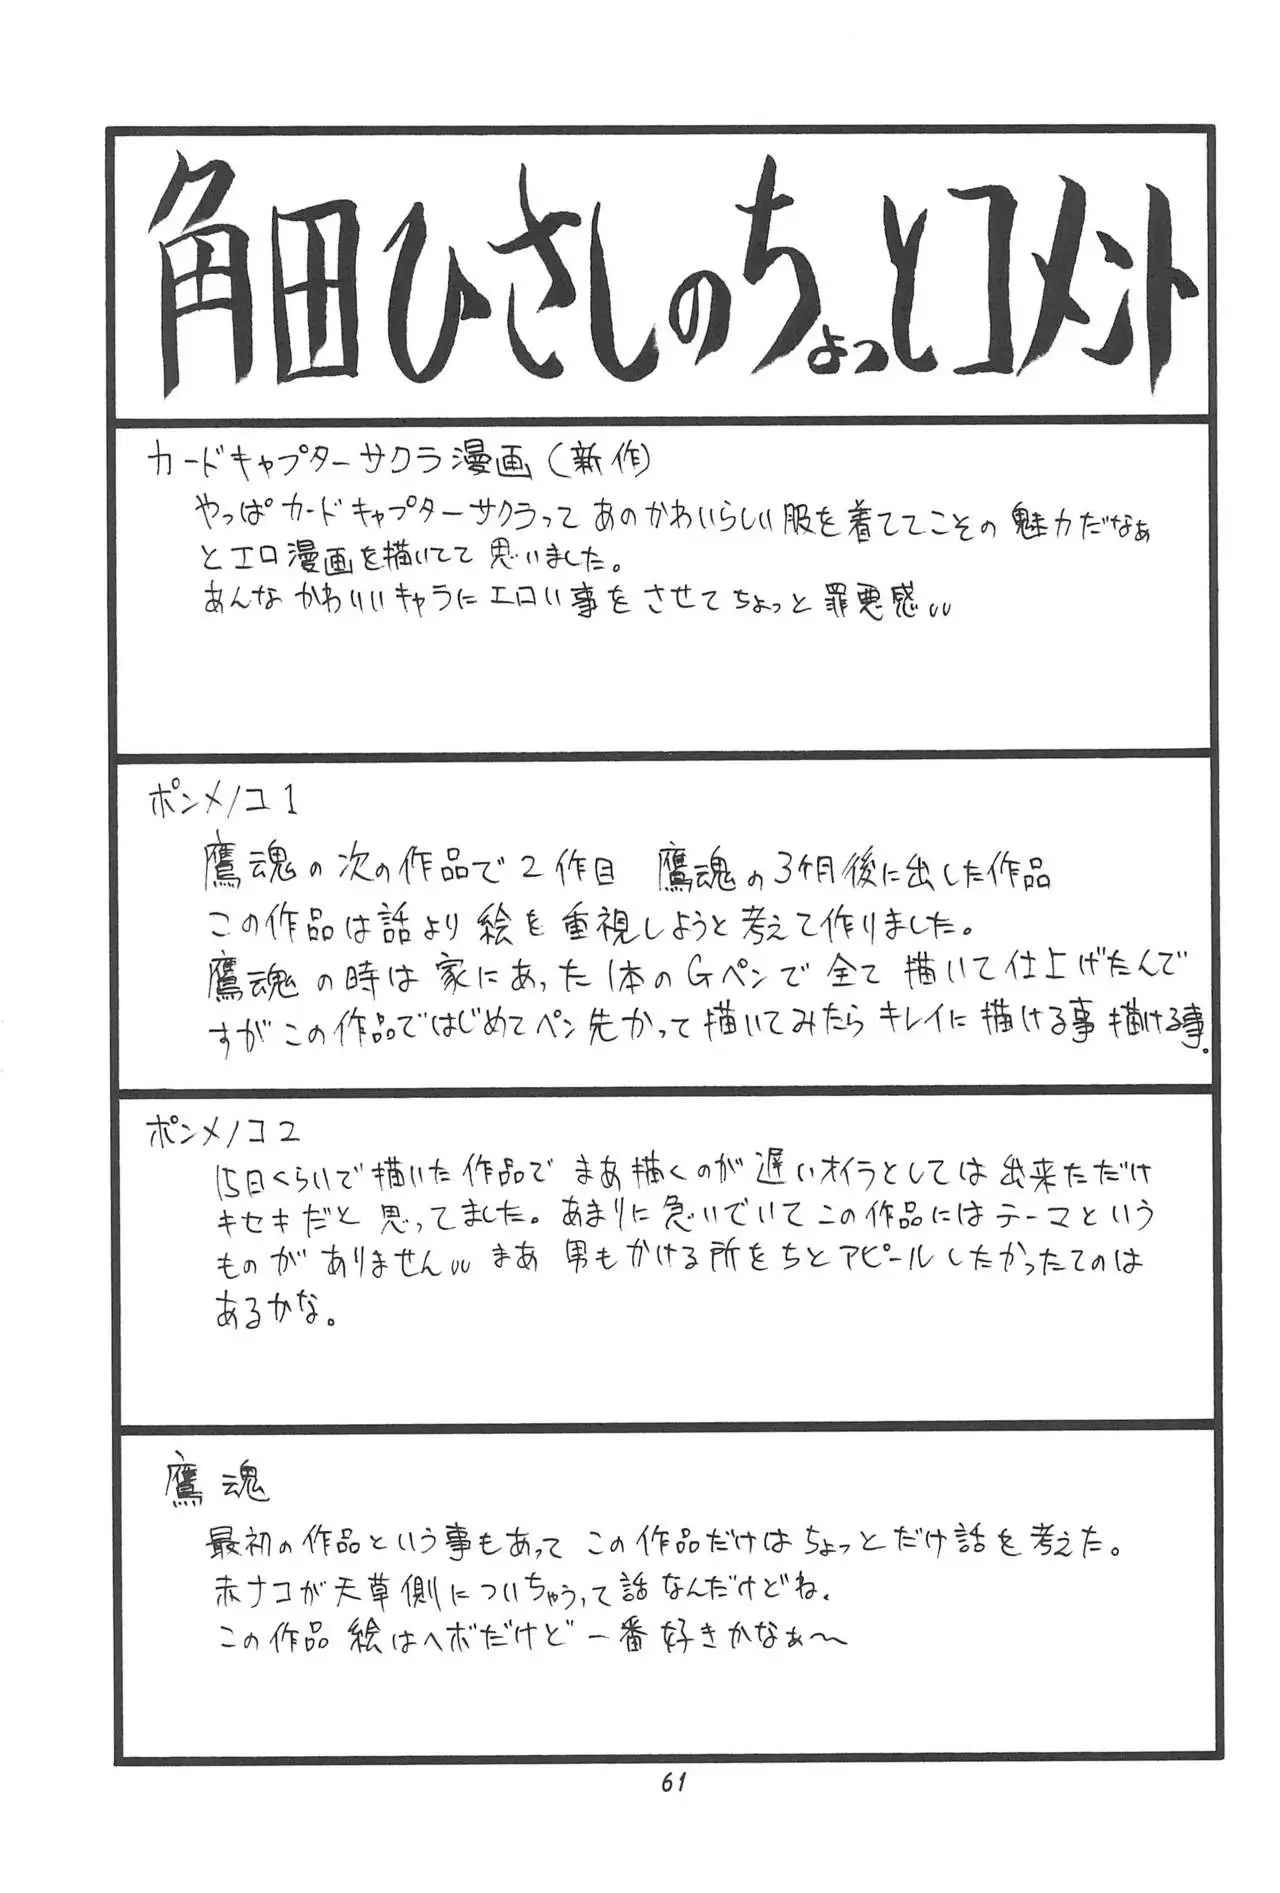 角田ひさしのちょっとコメント
カードキャプターサクラ漫画(新作)
やっぱカードキャプターサクラってあのかわいらしい服を着ててこその魅力だなぁ
とエロ漫画を描いてて思いました。
あんなかわいいキャラにエロい事をさせてちょっと罪悪感
ポンメノコ1
鷹魂の次の作品で2作目 鷹魂の3ヶ月後に出した作品
この作品は話より絵を重視しようと考えて作りました。
鷹魂の時は家にあった1本のGペンで全て描いて仕上げたんで
すがこの作品ではじめてペン先かって描いてみたらキレイに描ける事描ける事。
ポンメノコ2
15日くらいで描いた作品でまあ描くのが遅いオイラとしては出来ただけ
キセキだと思ってました。あまりに急いでいてこの作品にはテーマという
ものがありません まあ男もかける所をちとアピールしたかったてのは
あるかな。
鷹魂
最初の作品という事もあってこの作品だけはちょっとだけ話を考えた。
赤ナコが天草側についちゃうって話なんだけどね。
この作品絵はヘボだけど一番好きかなぁ〜
61